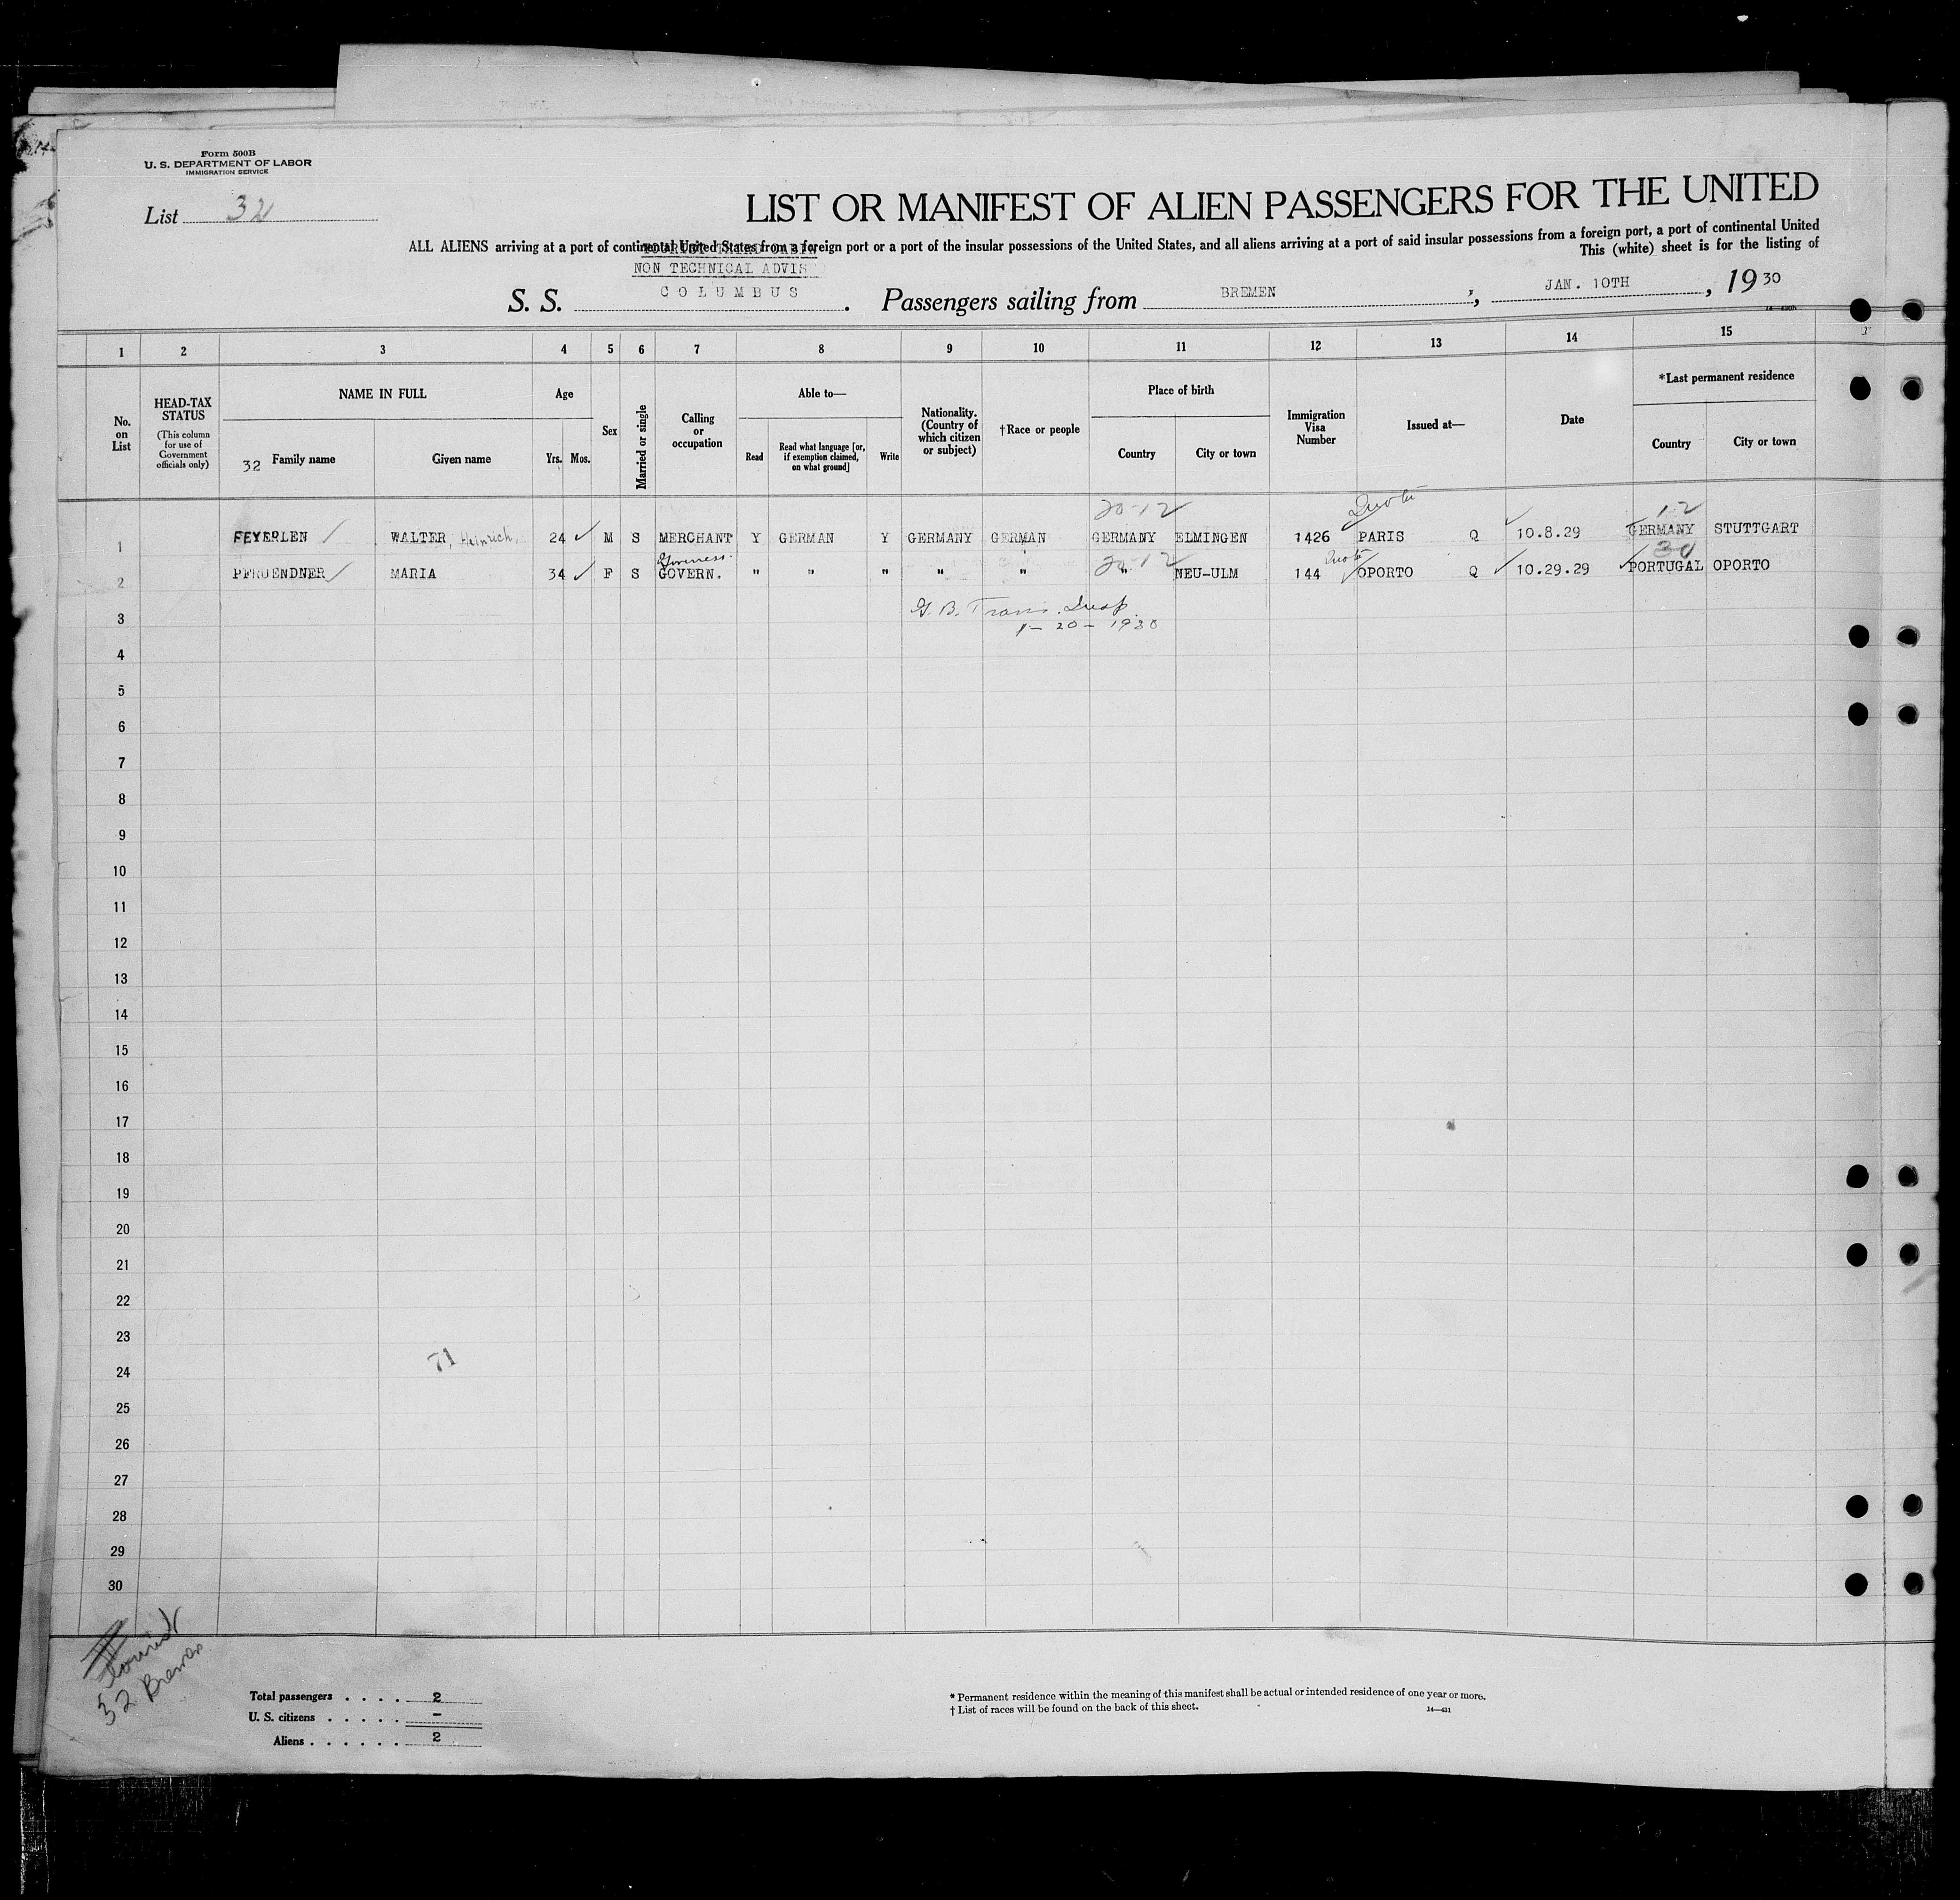 Form 500B
U. S. DEPARTMENT OF LABOR
IMMIGRATION SERVICE
List 32
LIST OR MANIFEST OF ALIEN PASSENGERS FOR THE UNITED
ALL ALIENS arriving at a port of continental United States from a foreign port or a port of the insular possessions of the United States, and all aliens arriving at a port of said insular possessions from a foreign port, a port of continental United
This (white) sheet is for the listing of
TOURIST THIRD CABIN
NON TECHNICAL ADVIS
S. S. COLUMBUS. Passengers sailing from BREMEN, JAN. 10TH, 1930
14—430b
1 2 3 4 5 6 7 8 9 10 11 12 13 14 15
No. on List
HEAD-TAX STATUS
(This column for use of Government officials only)
NAME IN FULL
32 Family name
Given name
Age
Yrs. Mos.
Sex
Married or single
Calling or occupation
Able to—
Read
Read what language [or, if exemption claimed, on what ground]
Write
Nationality. (Country of which citizen or subject)
†Race or people
Place of birth
Country
City or town
Immigration Visa Number
Issued at—
Date
*Last permanent residence
Country
City or town
20-12 Quota 12
1 FEYERLEN WALTER, Heinrich, 24 M S MERCHANT Y GERMAN Y GERMANY GERMAN GERMANY ELMINGEN 1426 PARIS Q 10.8.29 GERMANY STUTTGART
Governess 20-12 Quota 30
2 PFRUENDNER MARIA 34 F S GOVERN. " " " " " " NEU-ULM 144 OPORTO Q 10.29.29 PORTUGAL OPORTO
3 G. B. Trans. Insp.
1-20-1930
4
5
6
7
8
9
10
11
12
13
14
15
16
17
18
19
20
21
22
23
71
24
25
26
27
28
29
30
Tourist
32 Bremen
Total passengers . . . . 2
U. S. citizens . . . . . –
Aliens . . . . . . 2
* Permanent residence within the meaning of this manifest shall be actual or intended residence of one year or more.
† List of races will be found on the back of this sheet.
14—431